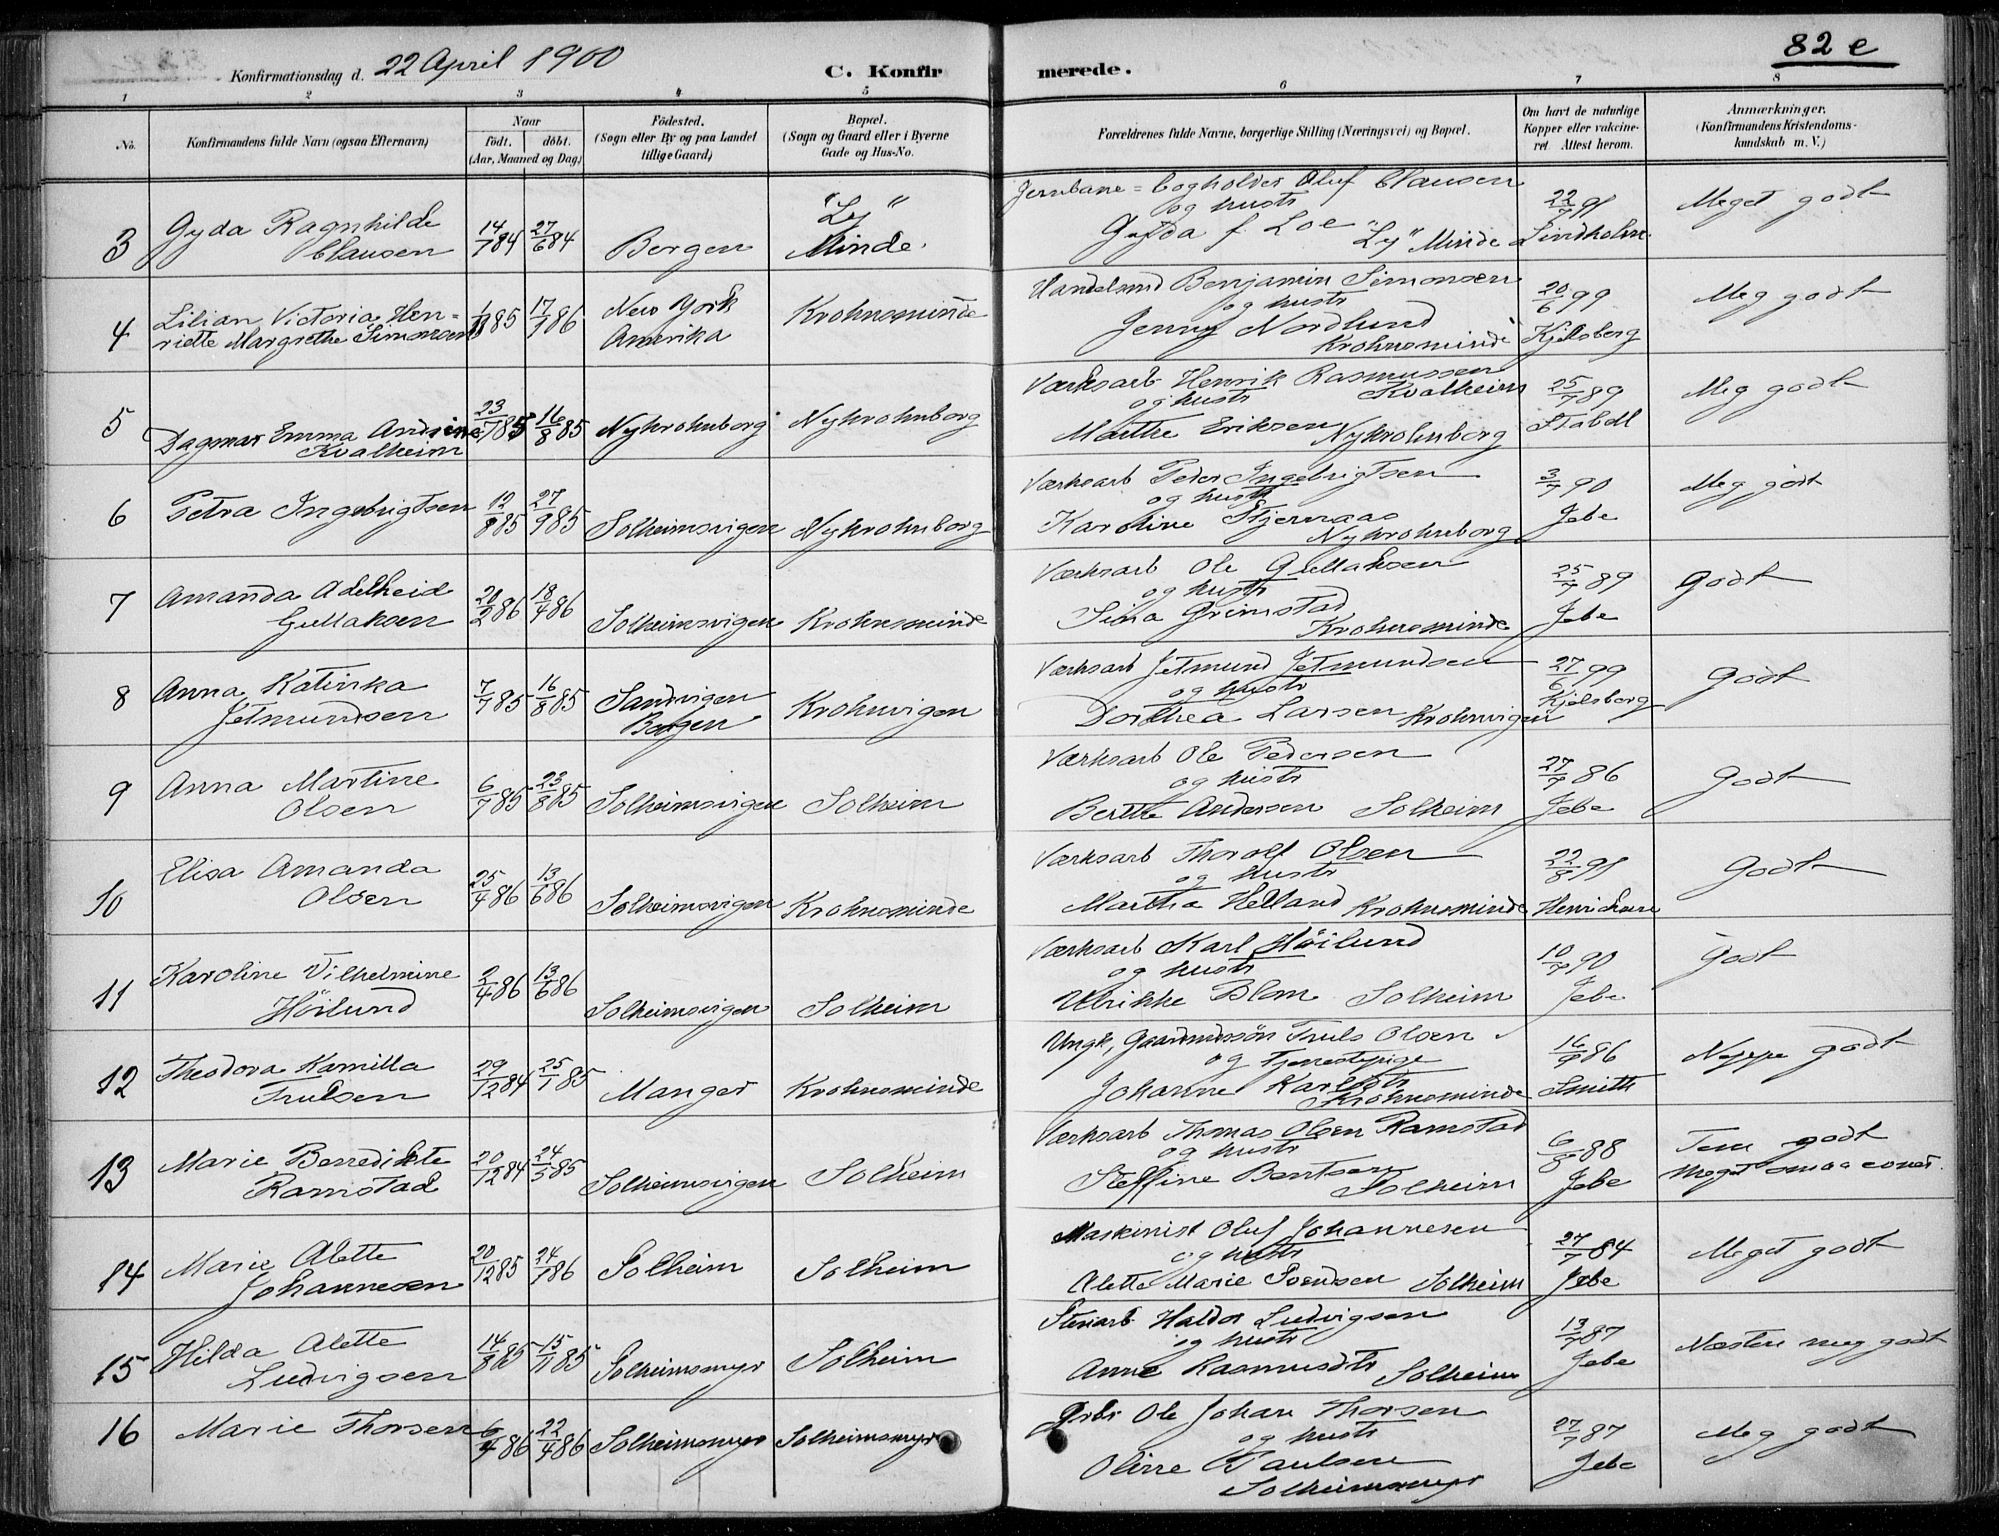 Konfirmationsdag d. 22 April 1900
C. Konfirmerede.
82 e
1 2 3 4 5 6 7 8
No.
Konfirmandens fulde Navn (ogsaa Efternavn)
Naar
födt. döbt.
(Aar, Maaned og Dag)
Födested.
(Sogn eller By og paa Landet
tillige Gaard)
Bopæl.
(Sogn og Gaard eller i Byerne
Gade og Hus-No.
Forældrenes fulde Navne, borgerlige Stilling (Næringsvei) og Bopæl.
Om havt de naturlige
Kopper eller vakcine-
ret. Attest herom.
Anmærkninger.
(Konfirmandens Kristendoms-
kundskab m. V.)
3
Gyda Ragnhilde
Clausen
14/7 84
27/6 84
Bergen
"Ly"
Minde.
Jernbane=bogholder Oluf Clausen
og hustr
Gyda f. Loe "Ly" Minde
22/7 91
Lindholm
Meget godt
4
Lilian Victoria Hen-
riette Margrethe Simonsen
1/11 85
17/1 86
New York
Amerika
Krohnsminde
Handelsmd Benjamin Simonsen
og hustr
Jenny Nordlund
Krohnsminde
20/6 99
Kjelsberg
Meg godt
5
Dagmar Emma Andrine
Kvalheim
23/7 85
16/8 85
Nykrohnborg
Nykrohnborg
Værksarb Henrik Rasmussen
og hustr Kvalheim
Marthe Eriksen Nykrohnborg
25/7 89
Stabdl
Meg godt
6
Petra Ingebrigtsen
12/8 85
27/9 85
Solheimsvigen
Nykrohnborg
Værksarb Peder Ingebrigtsen
og hustr
Karoline Stjernaas
Nykrohnborg
3/7 90
Jebe
Meg godt
7
Amanda Adelheid
Gullaksen
20/2 86
18/4 86
Solheimsvigen
Krohnsminde
Værksarb Ole Gullaksen
og hustr
Sina Grimstad
Krohnsminde
25/7 89
Jebe
Godt
8
Anna Katinka
Jetmundsen
7/7 85
16/8 85
Sandvigen
Bergen
Krohnvigen
Værksarb Jetmund Jetmundsen
og hustr
Dorthea Larsen Krohnvigen
27/6 99
Kjelsberg
Godt
9
Anna Martine
Olsen
6/7 85
23/8 85
Solheimsvigen
Solheim
Værksarb Ole Pedersen
og hustr
Berthe Andersen Solheim
27/7 86
Jebe
Godt
10
Elisa Amanda
Olsen
25/4 86
13/6 86
Solheimsvigen
Krohnsminde
Værksarb Thorolf Olsen
og hustr
Martha Helland Krohnsminde
22/8 91
Henrichsen
Godt
11
Karoline Vilhelmine
Höilund
2/4 86
13/6 86
Solheimsvigen
Solheim
Værksarb Karl Höilund
og hustr
Ulrikke Blom Solheim
10/7 90
Jebe
Godt
12
Theodora Kamilla
Trulsen
29/12 84
25/1 85
Manger
Krohnsminde
Ungk, Gaardmdssön Truls Olsen
og tjenestepige
Johanne Karlsdtr
Krohnsminde
16/9 86
Smith
Neppe godt
13
Marie Benedikte
Ramstad
20/12 84
24/5 85
Solheimsvigen
Solheim
Værksarb Thomas Olsen Ramstad
og hustr
Steffine Bentsen
Solheim
6/8 88
Jebe
Tem godt
Meget smaa evner.
14
Marie Alette
Johannesen
20/12 85
24/1 86
Solheim
Solheim
Maskinist Oluf Johannesen
og hustr
Alette Marie Svendsen Solheim
27/7 84
Jebe
Meget godt
15
Hilda Alette
Ludvigsen
14/8 85
15/11 85
Solheimsmyr
Solheim
Stenarb Haldor Ludvigsen
og hustr
Anne Rasmusdtr Solheim
13/7 87
Jebe
Næsten meg godt
16
Marie Thorsen
6/4 86
22/4 86
Solheimsmyr
Solheimsmyr
Arbr Ole Johan Thorsen
og hustr
Oline Paulsen
Solheimsmyr
27/7 87
Jebe
Meg godt